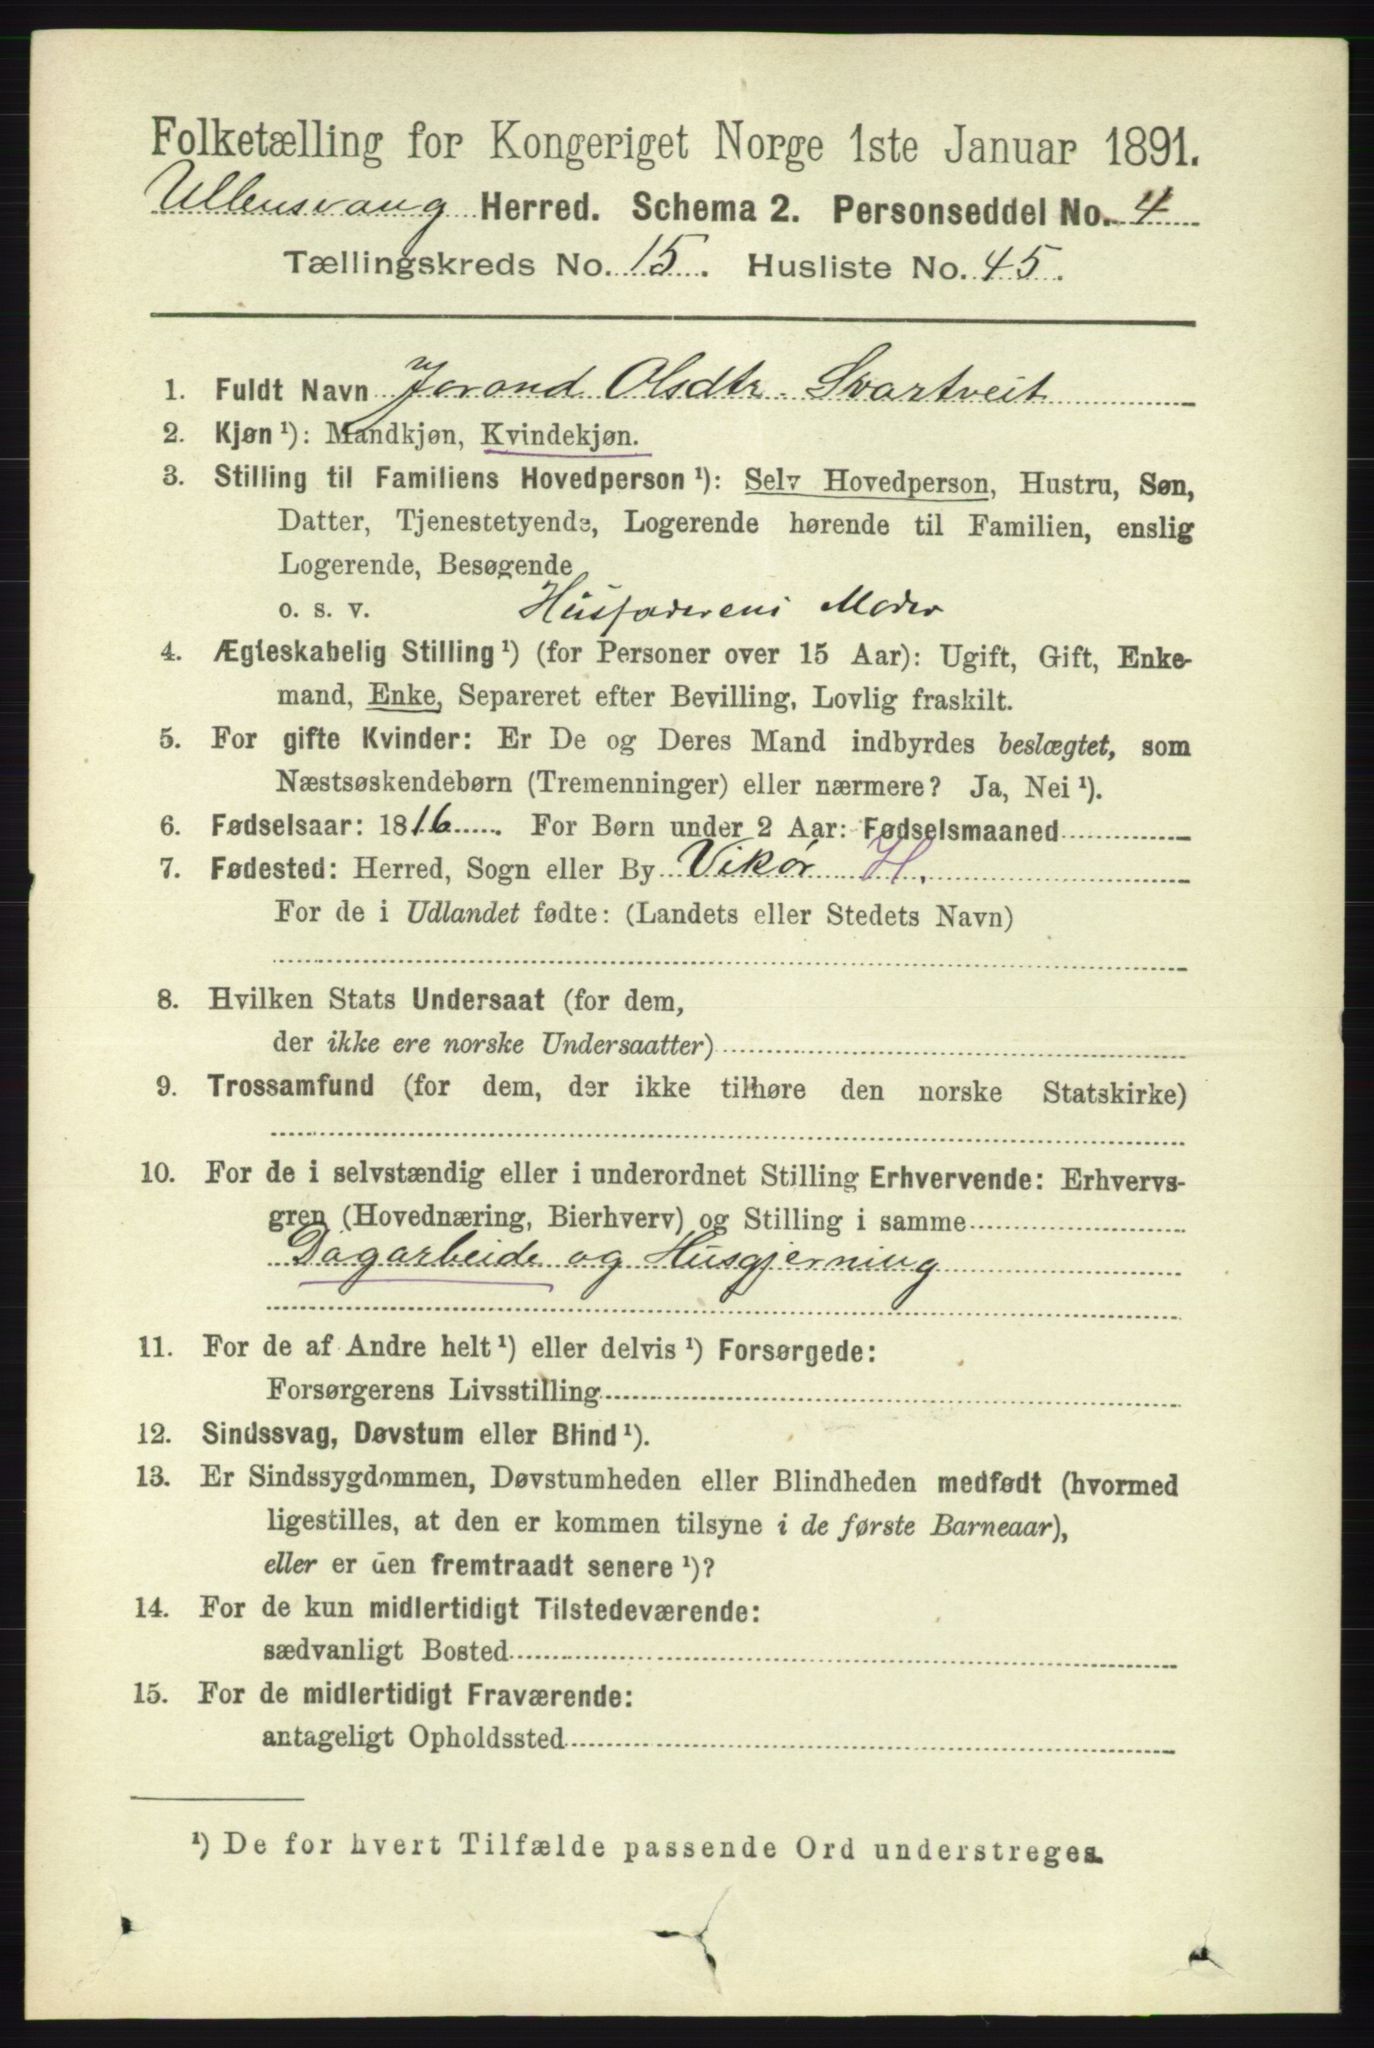 Folketælling for Kongeriget Norge 1ste Januar 1891.
Ullensvang Herred. Schema 2. Personseddel No. 4
Tællingskreds No. 15. Husliste No. 45.
1. Fuldt Navn Jorond Olsdtr. Svartveit
2. Kjøn ¹): Mandkjøn, Kvindekjøn.
3. Stilling til Familiens Hovedperson ¹): Selv Hovedperson, Hustru, Søn,
Datter, Tjenestetyende, Logerende hørende til Familien, enslig
Logerende, Besøgende
o. s. v. Husfaderens Moder
4. Ægteskabelig Stilling ¹) (for Personer over 15 Aar): Ugift, Gift, Enke-
mand, Enke, Separeret efter Bevilling, Lovlig fraskilt.
5. For gifte Kvinder: Er De og Deres Mand indbyrdes beslægtet, som
Næstsøskendebørn (Tremenninger) eller nærmere? Ja, Nei ¹).
6. Fødselsaar: 1816. For Børn under 2 Aar: Fødselsmaaned
7. Fødested: Herred, Sogn eller By Vikør H.
For de i Udlandet fødte: (Landets eller Stedets Navn)
8. Hvilken Stats Undersaat (for dem,
der ikke ere norske Undersaatter)
9. Trossamfund (for dem, der ikke tilhøre den norske Statskirke)
10. For de i selvstændig eller i underordnet Stilling Erhvervende: Erhvervs-
gren (Hovednæring, Bierhverv) og Stilling i samme
Dagarbeide og Husgjerning
11. For de af Andre helt ¹) eller delvis ¹) Forsørgede:
Forsørgerens Livsstilling
12. Sindssvag, Døvstum eller Blind ¹).
13. Er Sindssygdommen, Døvstumheden eller Blindheden medfødt (hvormed
ligestilles, at den er kommen tilsyne i de første Barneaar),
eller er den fremtraadt senere ¹)?
14. For de kun midlertidigt Tilstedeværende:
sædvanligt Bosted
15. For de midlertidigt Fraværende:
antageligt Opholdssted
¹) De for hvert Tilfælde passende Ord understreges.